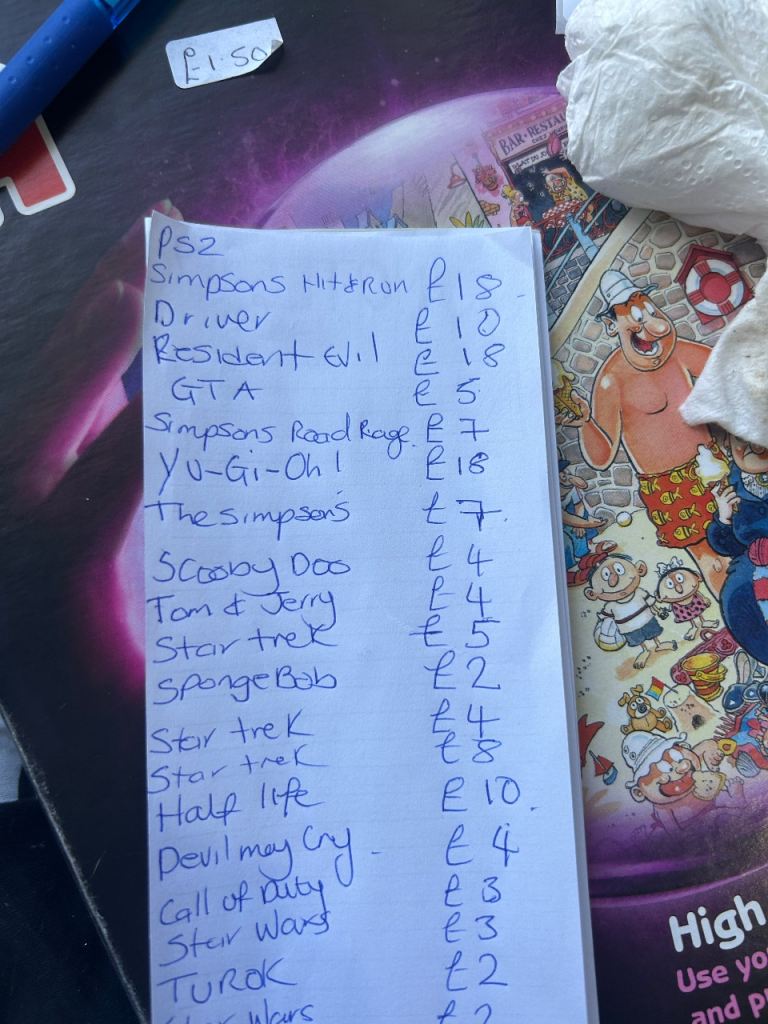 £1.50
BAR-RESTAU
PS2
Simpsons Hit & Run £18
Driver £10
Resident Evil £18
GTA £5
Simpsons Road Rage £7
Yu-Gi-Oh! £18
The Simpsons £7
Scooby Doo £4
Tom & Jerry £4
Star trek £5
SpongeBob £2
Star trek £4
Star trek £8
Half life £10.
Devil may Cry - £4
Call of Duty £3
Star Wars £3
TUROK £2
Star Wars £2
High
Use yo
and p